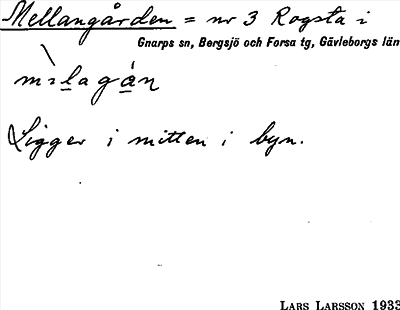 Mellangården = nr 3 Rogsta i
Gnarps sn, Bergsjö och Forsa tg, Gävleborgs län
Ligger i mitten i byn.
LARS LARSSON 1933